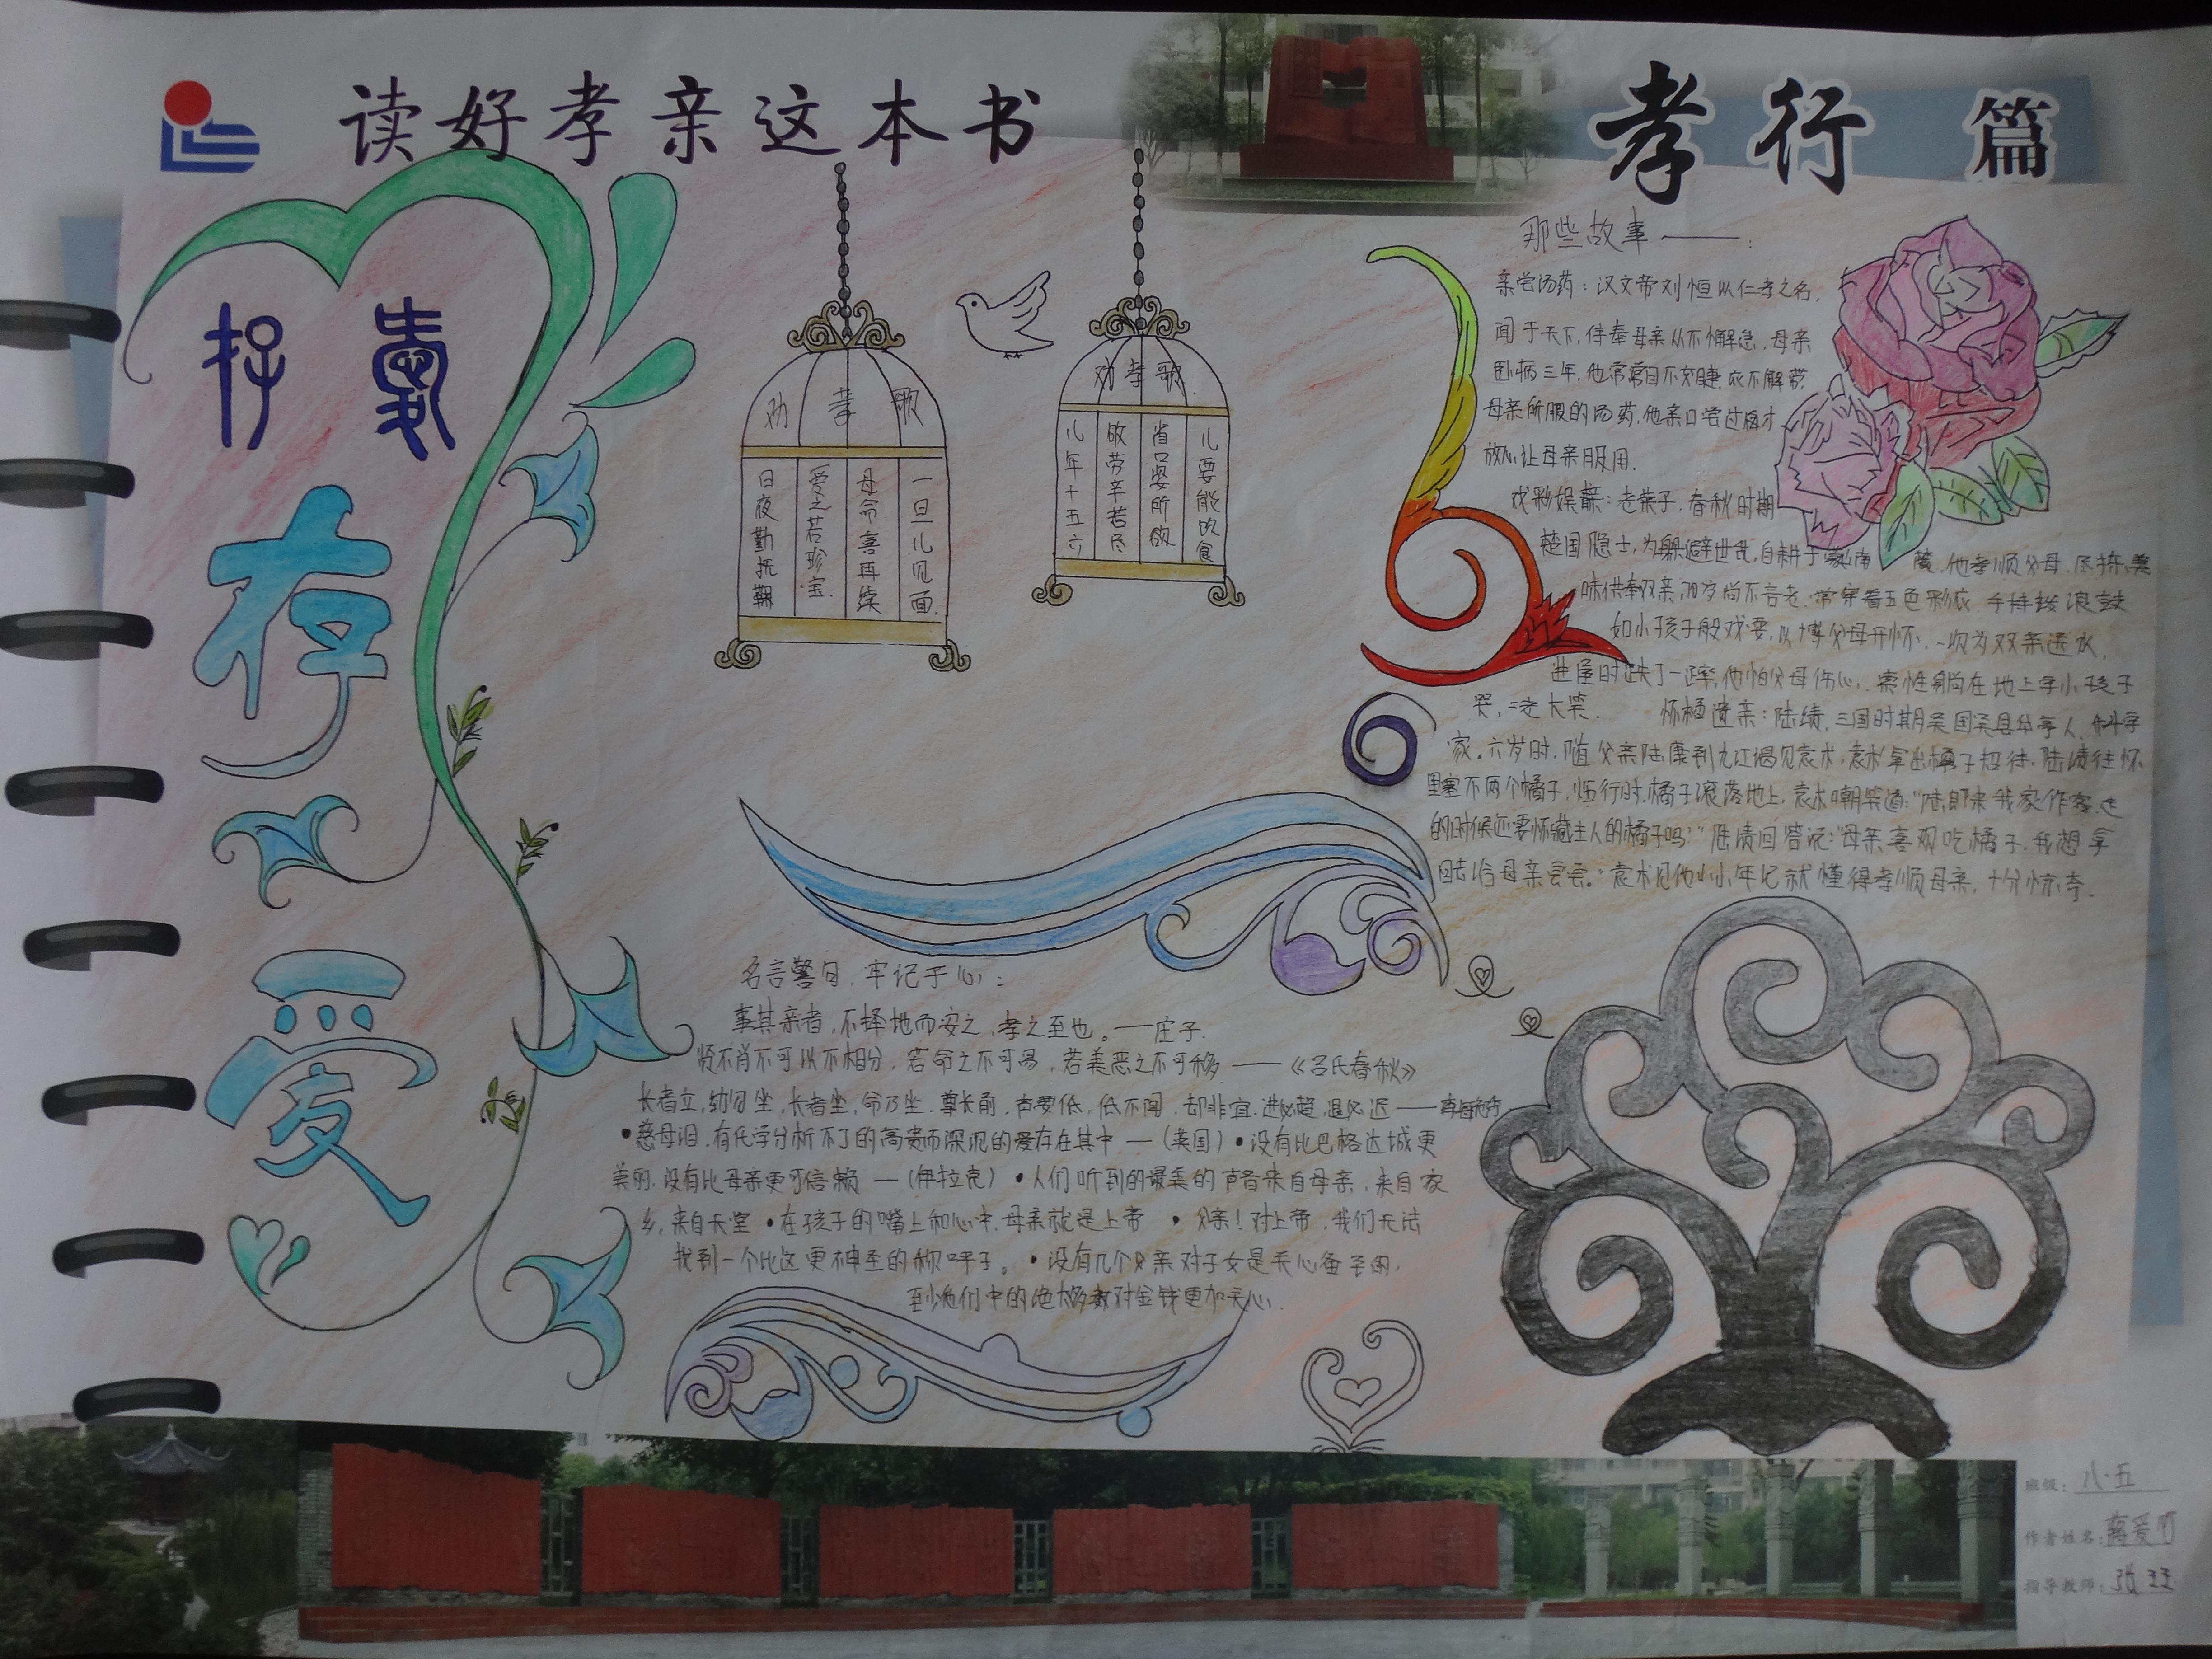 读好孝亲这本书
孝行篇
存爱
存
爱
劝孝歌
一旦儿见面
母命喜再续
爱之若珍宝
日夜勤抚鞠
劝孝歌
儿要能饮食
省口姿所欲
劬劳辛苦尽
儿年十五六
那些故事——:
亲尝汤药:汉文帝刘恒以仁孝之名,
闻于天下,侍奉母亲从不懈怠,母亲
卧病三年,他常常目不交睫,衣不解带
母亲所服的汤药,他亲口尝过后才
放心让母亲服用.
戏彩娱亲:老莱子,春秋时期
楚国隐士,为躲避世乱,自耕于蒙山南麓,他孝顺父母,尽拣美
味供奉双亲,70岁尚不言老.常穿着五色彩衣.手持拨浪鼓
如小孩子般戏耍,以博父母开怀.一次为双亲送水,
进屋时跌了一跤,他怕父母伤心,索性躺在地上学小孩子
哭,二老大笑. 怀橘遗亲:陆绩,三国时期吴国吴县华亭人,科学
家。六岁时,随父亲陆康到九江谒见袁术,袁术拿出橘子招待.陆绩往怀
里塞了两个橘子,临行时,橘子滚落地上,袁术嘲笑道:"陆郎来我家作客,走
的时候还要怀藏主人的橘子吗?"陆绩回答说:"母亲喜欢吃橘子,我想拿
回去给母亲尝尝。"袁术见他小小年纪就懂得孝顺母亲,十分惊奇.
名言警句,牢记于心:
事其亲者,不择地而安之,孝之至也。——庄子.
贤不肖不可以不相分,若命之不可易,若美恶之不可移——《吕氏春秋》
长者立,幼勿坐,长者坐,命乃坐.尊长前,声要低,低不闻.却非宜.进必趋,退必迟——
•慈母泪,有化学分析不了的高贵而深沉的爱存在其中—(英国)•没有比巴格达城更
美丽,没有比母亲更可信赖—(伊拉克)•人们听到的最美的声音来自母亲,来自家
乡,来自天堂•在孩子的嘴上和心中,母亲就是上帝•父亲!对上帝,我们无法
找到一个比这更神圣的称呼了。•没有几个父亲对子女是关心备至的,
至少他们中的绝大多数对金钱更加关心.
班级:八.五
作者姓名:
指导教师:张